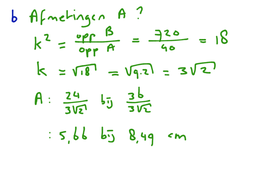 b Afmetingen A ?
k² = opp B / opp A = 720 / 40 = 18
k = √18 = √9·2 = 3√2
A : 24 / 3√2 bij 36 / 3√2
: 5,66 bij 8,49 cm